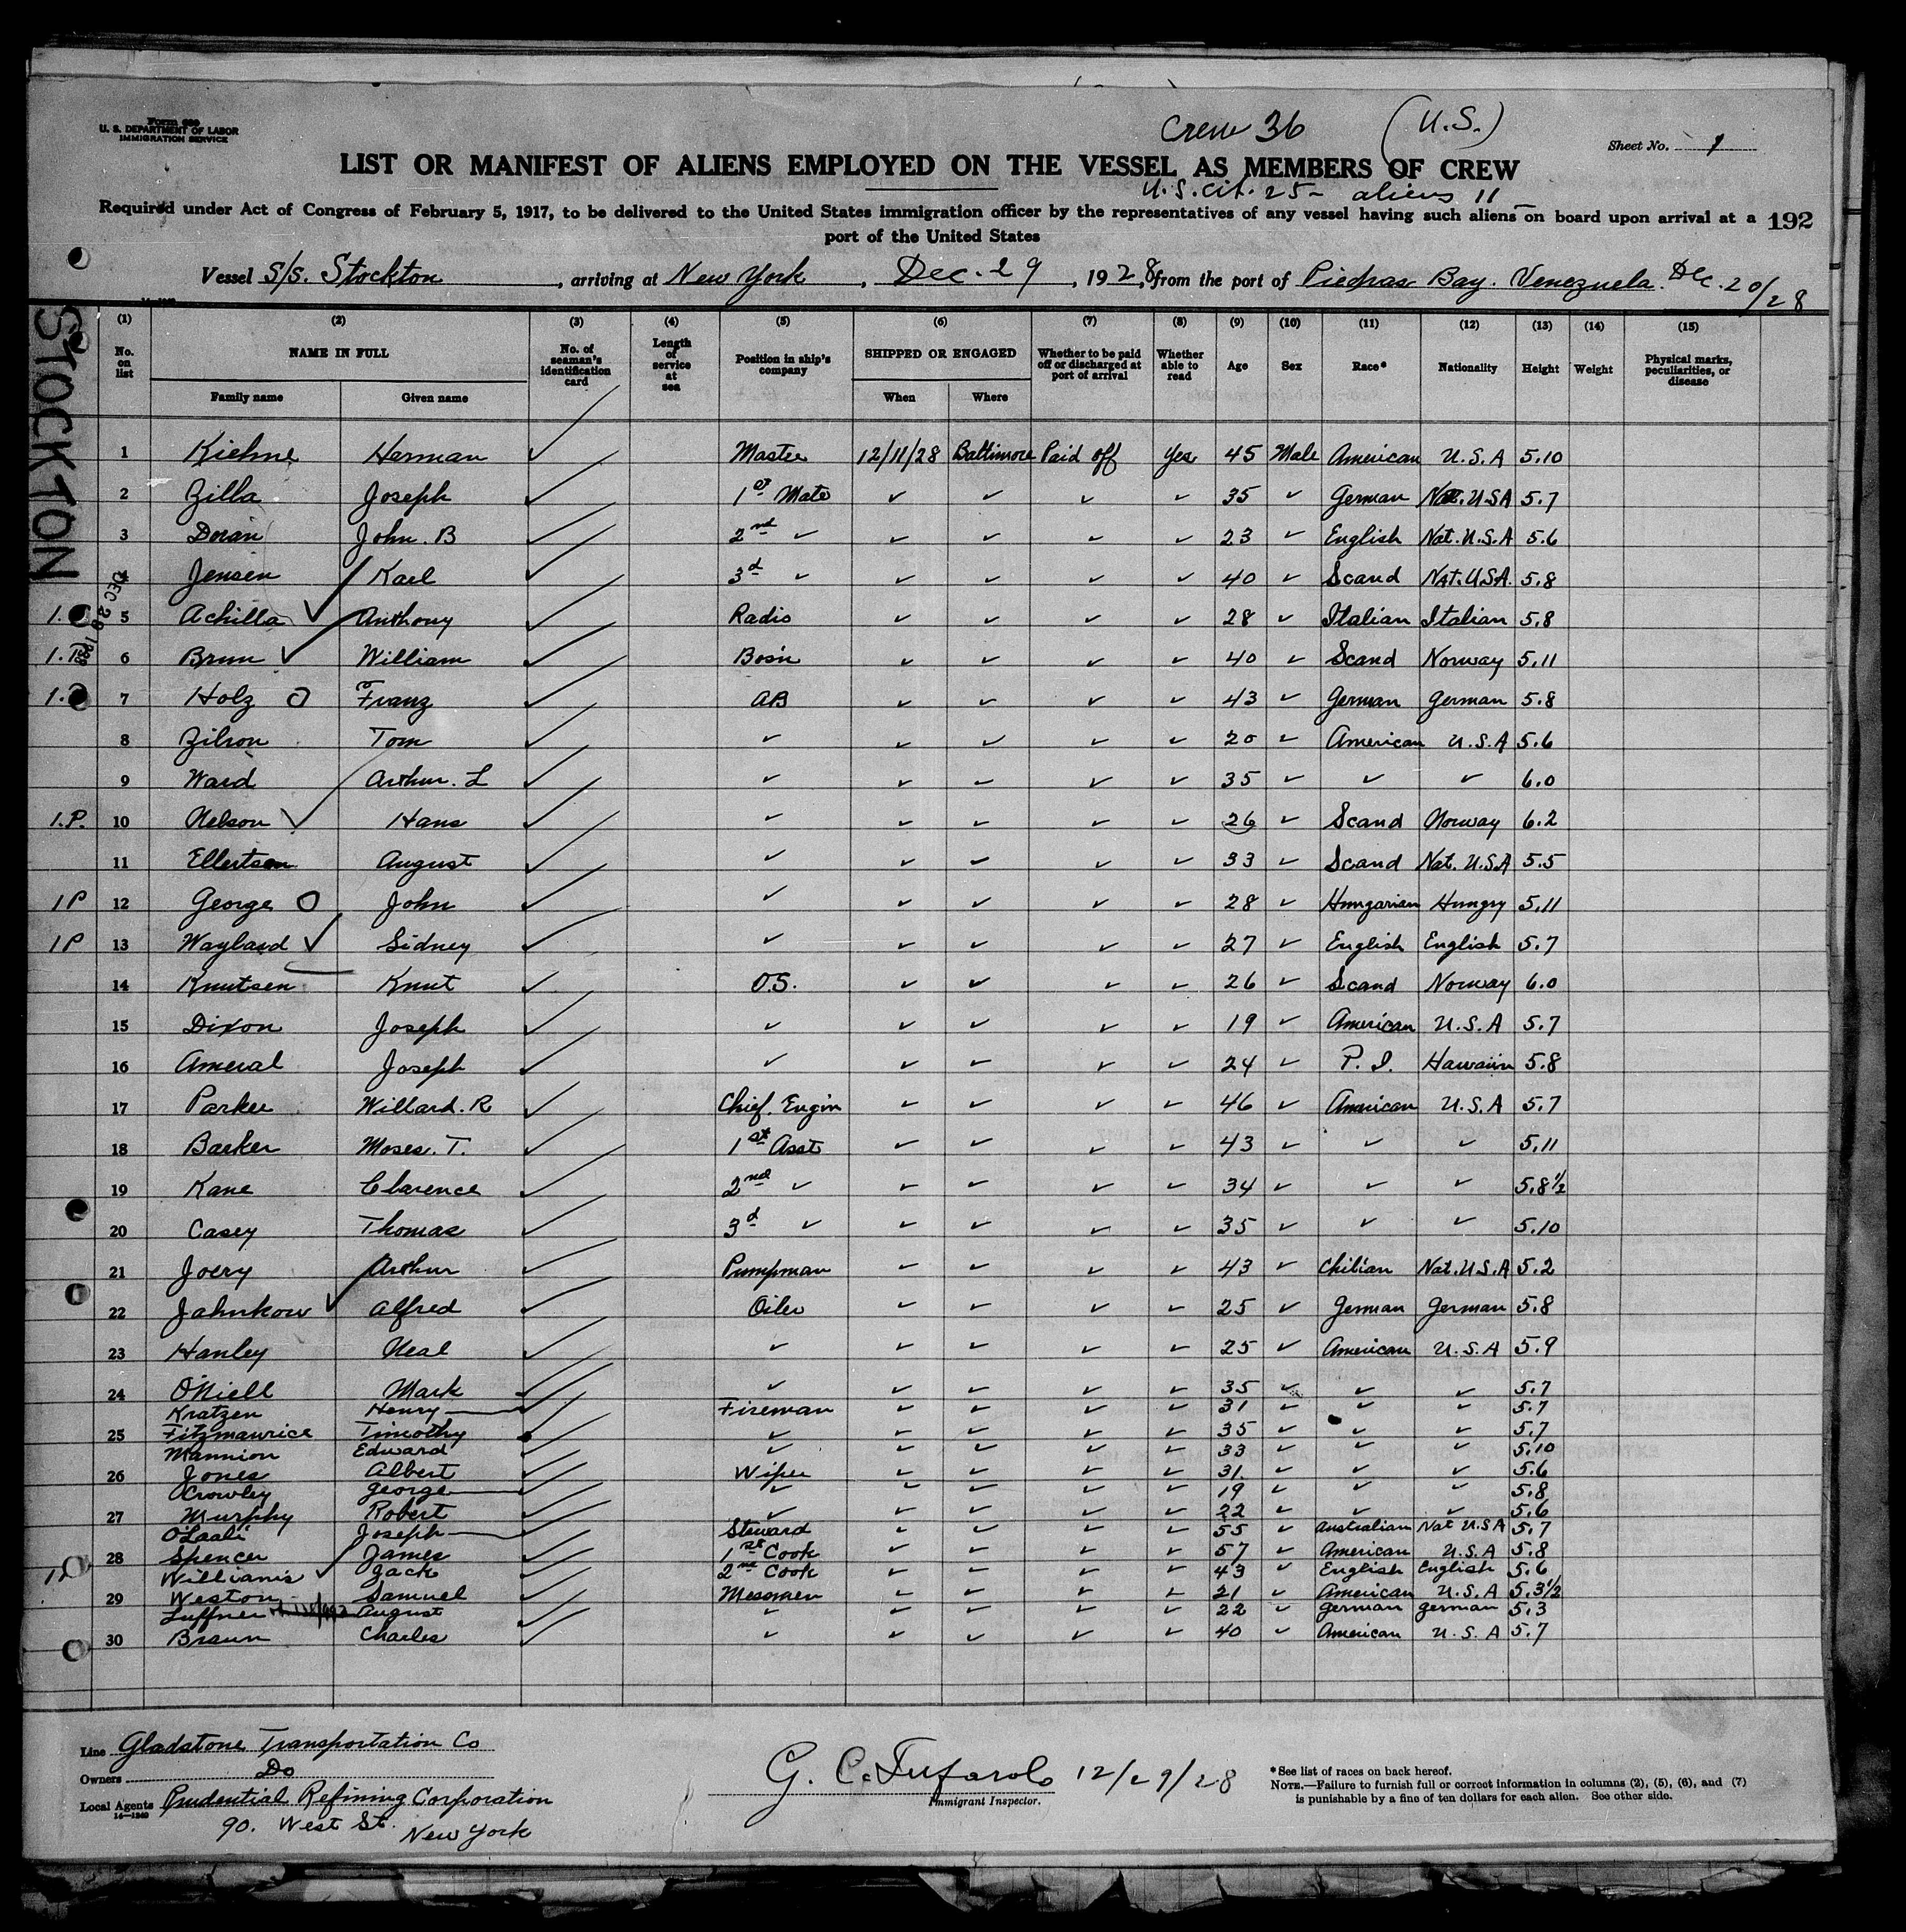 Form 689
U. S. DEPARTMENT OF LABOR
IMMIGRATION SERVICE
Crew 36 (U.S.)
Sheet No. 1
LIST OR MANIFEST OF ALIENS EMPLOYED ON THE VESSEL AS MEMBERS OF CREW
U.S. cit. 25 - aliens 11
Required under Act of Congress of February 5, 1917, to be delivered to the United States immigration officer by the representatives of any vessel having such aliens on board upon arrival at a
port of the United States
192
Vessel S/S. Stockton, arriving at New York, Dec. 29, 1928, from the port of Piedras Bay. Venezuela. Dec. 20/28
STOCKTON
DEC 29 1928
(1) (2) (3) (4) (5) (6) (7) (8) (9) (10) (11) (12) (13) (14) (15)
No. on list NAME IN FULL No. of seaman's identification card Length of service at sea Position in ship's company SHIPPED OR ENGAGED Whether to be paid off or discharged at port of arrival Whether able to read Age Sex Race* Nationality Height Weight Physical marks, peculiarities, or disease
Family name Given name When Where
1 Kiehne Herman ✓ Master 12/11/28 Baltimore Paid off Yes 45 Male American U.S.A 5.10
2 Zilla Joseph ✓ 1st Mate ✓ ✓ ✓ ✓ 35 ✓ German Nat. USA 5.7
3 Doran John. B ✓ 2nd ✓ ✓ ✓ ✓ ✓ 23 ✓ English Nat. U.S.A 5.6
4 Jensen Karl ✓ 3d ✓ ✓ ✓ ✓ ✓ 40 ✓ Scand Nat. USA. 5.8
1. 5 Achilla ✓ Anthony ✓ Radio ✓ ✓ ✓ ✓ 28 ✓ Italian Italian 5.8
1. 6 Brun ✓ William ✓ Bos'n ✓ ✓ ✓ ✓ 40 ✓ Scand Norway 5.11
1. 7 Holz O Franz ✓ AB ✓ ✓ ✓ ✓ 43 ✓ German German 5.8
8 Zilson Tom ✓ ✓ ✓ ✓ ✓ ✓ 20 ✓ American U.S.A 5.6
9 Ward Arthur. L ✓ ✓ ✓ ✓ ✓ ✓ 35 ✓ ✓ ✓ 6.0
1.P. 10 Nelson ✓ Hans ✓ ✓ ✓ ✓ ✓ ✓ 26 ✓ Scand Norway 6.2
11 Ellertsen August ✓ ✓ ✓ ✓ ✓ ✓ 33 ✓ Scand Nat. U.S.A 5.5
1P 12 George O John ✓ ✓ ✓ ✓ ✓ ✓ 28 ✓ Hungarian Hungry 5.11
1P 13 Waylaid ✓ Sidney ✓ ✓ ✓ ✓ ✓ ✓ 27 ✓ English English 5.7
14 Knutsen Knut ✓ O.S. ✓ ✓ ✓ ✓ 26 ✓ Scand Norway 6.0
15 Dixon Joseph ✓ ✓ ✓ ✓ ✓ ✓ 19 ✓ American U.S.A 5.7
16 Ameral Joseph ✓ ✓ ✓ ✓ ✓ ✓ 24 ✓ P. I. Hawaiin 5.8
17 Parker Willard. R ✓ Chief. Engin ✓ ✓ ✓ ✓ 46 ✓ American U.S.A 5.7
18 Barker Moses. T. ✓ 1st Asst ✓ ✓ ✓ ✓ 43 ✓ ✓ ✓ 5.11
19 Kane Clarence ✓ 2nd ✓ ✓ ✓ ✓ ✓ 34 ✓ ✓ ✓ 5.8 1/2
20 Casey Thomas ✓ 3d ✓ ✓ ✓ ✓ ✓ 35 ✓ ✓ ✓ 5.10
21 Joery Arthur ✓ Pumpman ✓ ✓ ✓ ✓ 43 ✓ Chilian Nat. U.S.A 5.2
22 Jahnkow ✓ Alfred ✓ Oiler ✓ ✓ ✓ ✓ 25 ✓ German German 5.8
23 Hanley Neal ✓ ✓ ✓ ✓ ✓ ✓ 25 ✓ American U.S.A 5.9
24 O'Niell Mark ✓ ✓ ✓ ✓ ✓ ✓ 35 ✓ ✓ ✓ 5.7
Kratzen Henry ✓ Fireman ✓ ✓ ✓ ✓ 31 ✓ ✓ ✓ 5.7
25 Fitzmaurice Timothy ✓ ✓ ✓ ✓ ✓ ✓ 35 ✓ ✓ ✓ 5.7
Mannion Edward ✓ ✓ ✓ ✓ ✓ ✓ 33 ✓ ✓ ✓ 5.10
26 Jones Albert ✓ Wiper ✓ ✓ ✓ ✓ 31. ✓ ✓ ✓ 5.6
Crowley George ✓ ✓ ✓ ✓ ✓ ✓ 19 ✓ ✓ ✓ 5.8
27 Murphy Robert ✓ ✓ ✓ ✓ ✓ ✓ 22 ✓ ✓ ✓ 5.6
Joseph ✓ Steward ✓ ✓ ✓ ✓ 55 ✓ Australian Nat U.S.A 5.7
28 Spencer James ✓ 1st Cook ✓ ✓ ✓ ✓ 57 ✓ American U.S.A 5.8
Williams ✓ Jack ✓ 2nd Cook ✓ ✓ ✓ ✓ 43 ✓ English English 5.6
29 Weston Samuel ✓ Messmen ✓ ✓ ✓ ✓ 21 ✓ American U.S.A 5.3 1/2
Luffner August ✓ ✓ ✓ ✓ ✓ ✓ 22 ✓ German German 5.3
30 Braun Charles ✓ ✓ ✓ ✓ ✓ ✓ 40 ✓ American U.S.A 5.7
Line Gladstone Transportation Co
Owners Do
Local Agents Prudential Refining Corporation
90. West St. New York
G. C. Tufarolo 12/29/28
Immigrant Inspector.
*See list of races on back hereof.
NOTE.—Failure to furnish full or correct information in columns (2), (5), (6), and (7)
is punishable by a fine of ten dollars for each alien. See other side.